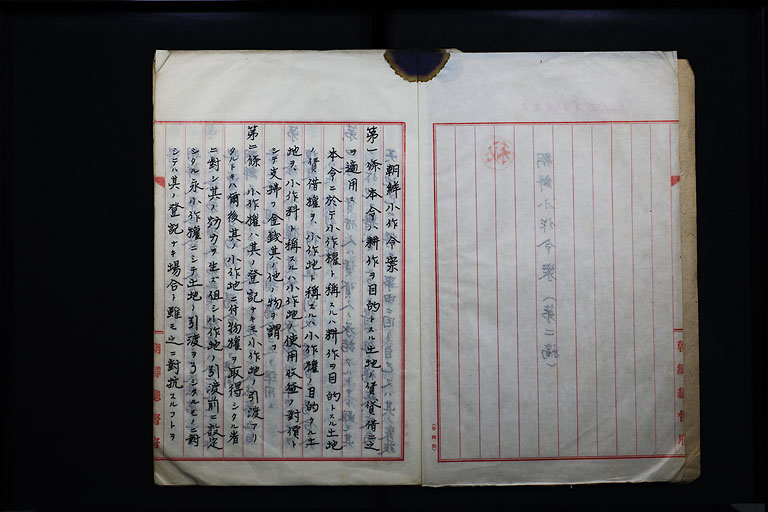 朝鮮小作令案(第二稿)
朝鮮小作令案
第一條 本令ハ耕作ヲ目的トスル土地ノ賃貸借ニ之
ヲ適用ス
本令ニ於テ小作權ト稱スルハ耕作ヲ目的トスル土地
ノ賃借權ヲ、小作地ト稱スルハ小作權ノ目的タル土
地ヲ、小作料ト稱スルハ小作地ノ使用收益ノ對價ト
シテ支拂フ金錢其ノ他ノ物ヲ謂フ
第二條 小作權ハ其ノ登記ナキモ小作地ノ引渡アリ
タルトキハ爾後其ノ小作地ニ付物權ヲ取得シタル者
ニ對シ其ノ效力ヲ生ズ但シ小作地ノ引渡前ニ設定
シタル永小作權ニシテ土地ノ引渡ヲ了シタルモノニ對
シテハ其ノ登記ナキ場合ト雖モ之ニ對抗スルコトヲ
朝鮮總督府